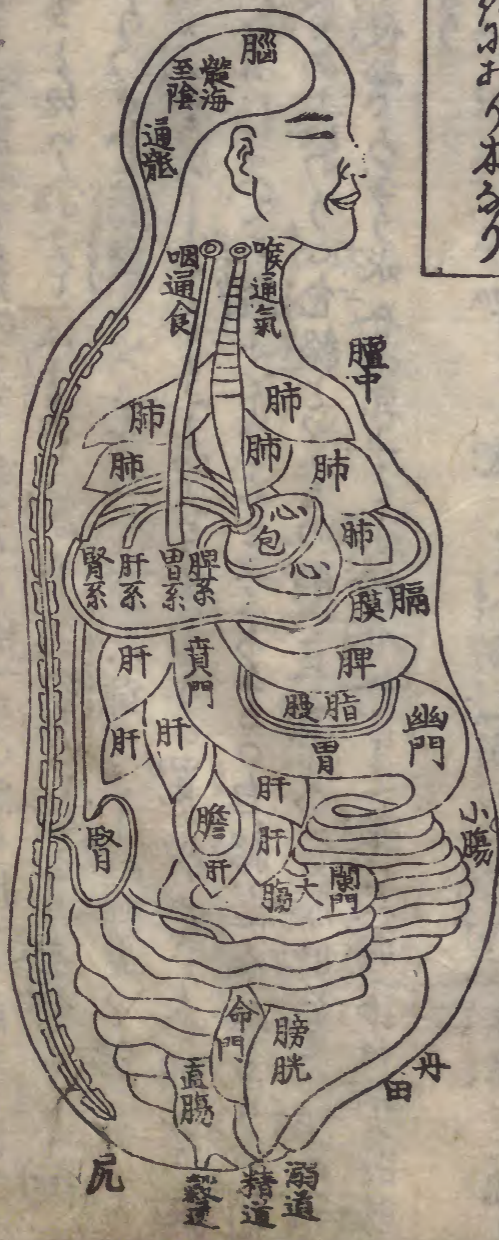 腦
髓海
至陰
通髓
咽通食
喉通氣
膻中
肺
肺
肺
肺
肺
肺
心
包
心
腎系
肝系
胃系
脾系
膈
膜
肝
賁門
脾
脂
幽門
胃
肝
肝
肝
小膓
膽
肝
肝
腎
大
膓
闌門
命門
膀胱
直膓
丹田
尻
穀道
精道
溺道